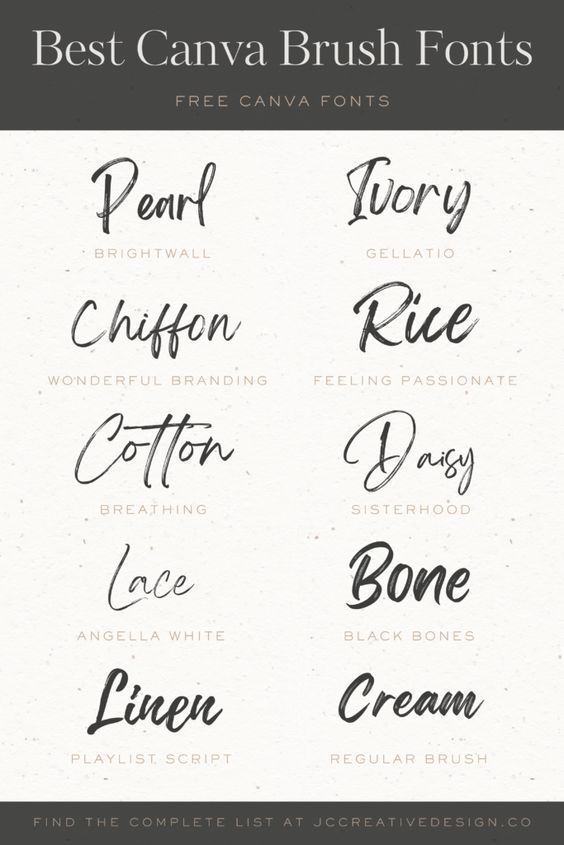 Best Canva Brush Fonts
FREE CANVA FONTS
Pearl
BRIGHTWALL
Ivory
GELLATIO
Chiffon
WONDERFUL BRANDING
Rice
FEELING PASSIONATE
Cotton
BREATHING
Daisy
SISTERHOOD
Lace
ANGELLA WHITE
Bone
BLACK BONES
Linen
PLAYLIST SCRIPT
Cream
REGULAR BRUSH
FIND THE COMPLETE LIST AT JCCREATIVEDESIGN.CO